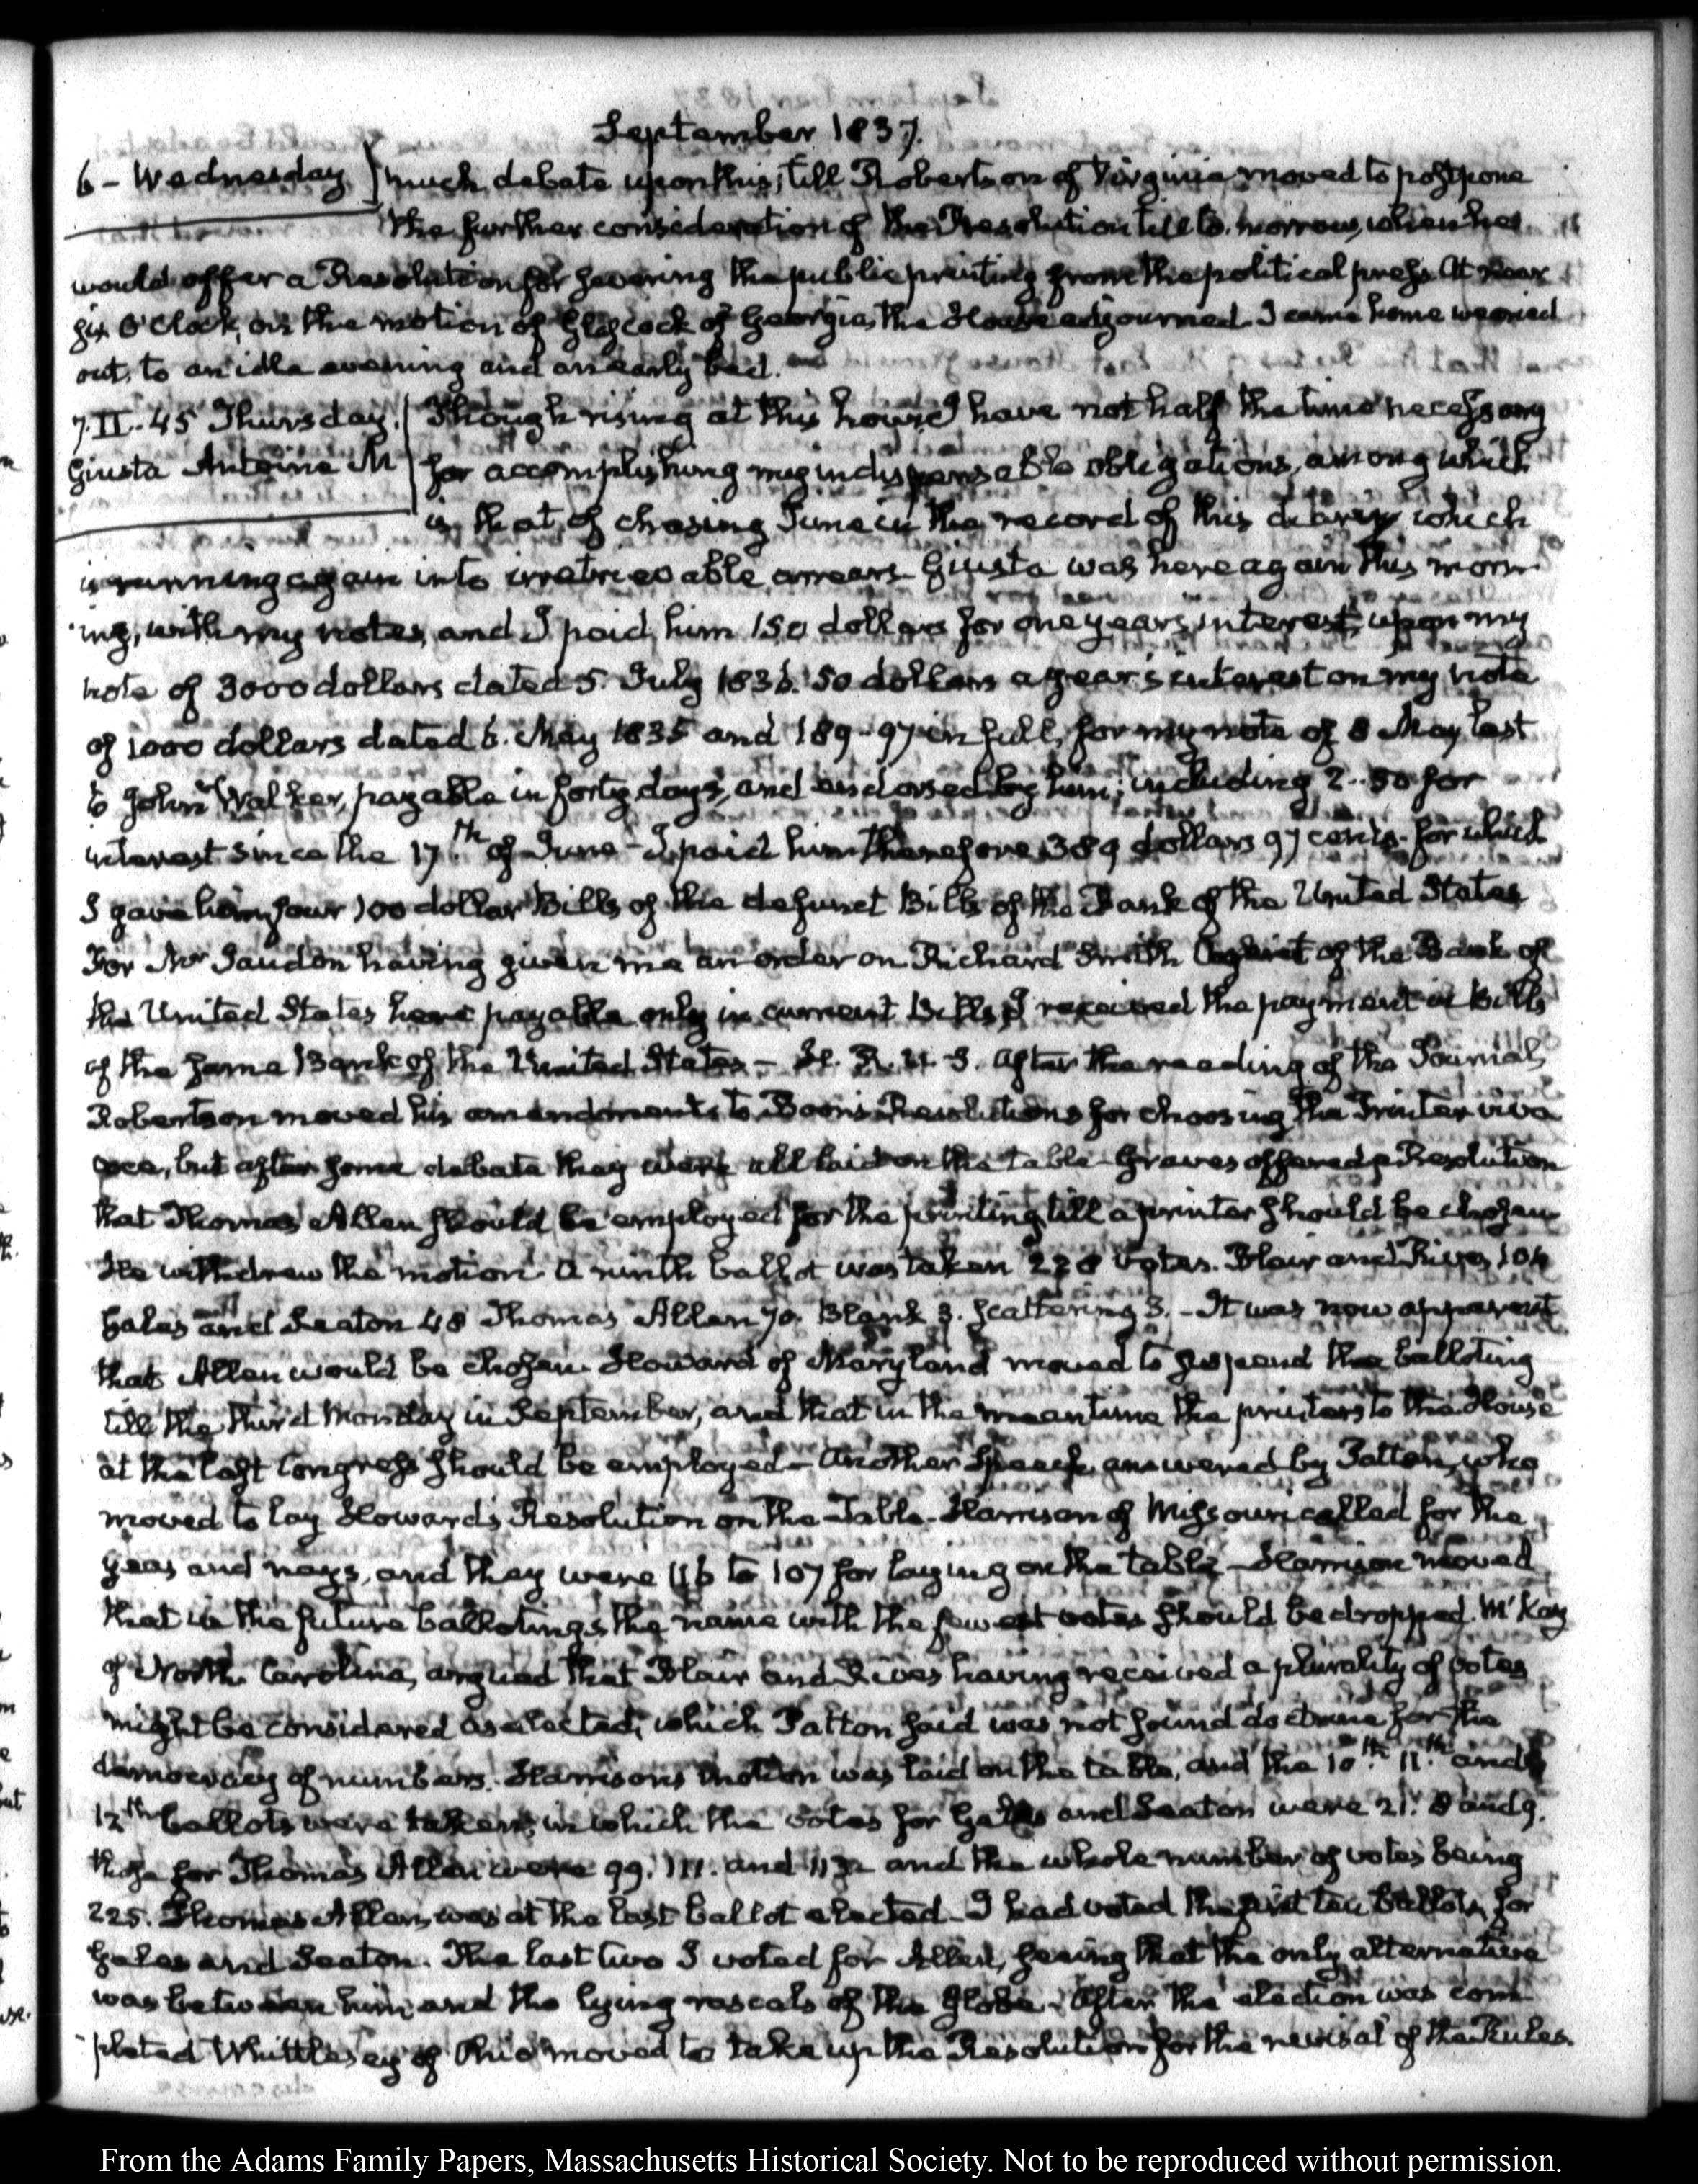 September 1837.
6 - Wednesday } much debate upon this, till Robertson of Virginia moved to postpone
the further consideration of the Resolution till to-morrow, when he
would offer a Resolution for severing the public printing from the political press. At near
six O'Clock, on the motion of Glascock of Georgia, the House adjourned. I came home wearied
out, to an idle evening and an early bed.
7. II. 45 Thursday. | Though rising at this hour I have not half the time necessary
Giusta Antoine M | for accomplishing my indispensable obligations, among which
is that of chasing Time in the record of this diary, which
is running again into irretrievable arrears. Giusta was here again this morn-
ing, with my notes, and I paid him 150 dollars for one years interest, upon my
note of 3000 dollars dated 5. July 1836. 50 dollars a year's interest on my note
of 1000 dollars dated 6. May 1835 and 189-97 in full, for my note of 8 May last
to John Walker, payable in forty days, and endorsed by him; including 2..50 for
interest since the 17th of June - I paid him therefore 389 dollars 97 cents. for which
I gave him four 100 dollar Bills of the defunct Bills of the Bank of the United States
For Mr Jaudon having given me an order on Richard Smith Agent of the Bank of
the United States here payable only in current Bills, I received the payment in Bills
of the same Bank of the United States - H. R. U. S. After the reading of the Journal,
Robertson moved his amendments to Boon's Resolutions for choosing the Printer viva
voce, but after some debate they were all laid on the table. Graves offered a Resolution
that Thomas Allen should be employed for the printing, till a printer should be chosen
He withdrew the motion. A ninth ballot was taken 228 votes. Blair and Rives 104
Gales and Seaton 48 Thomas Allen 70. Blank 3. scattering 3. - It was now apparent
that Allen would be chosen. Howard of Maryland moved to suspend the balloting
till the third Monday in September, and that in the meantime the printers to the House
at the last Congress should be employed - Another Speech, answered by Patton, who
moved to lay Howard's Resolution on the Table. Harrison of Missouri called for the
yeas and nays, and they were 116 to 107 for laying on the table - Harrison moved
that in the future ballotings the name with the fewest votes should be dropped. McKay
of North Carolina, argued that Blair and Rives having received a plurality of votes
might be considered as elected, which Patton said was not sound doctrine for the
democracy of numbers. Harrisons motion was laid on the table, and the 10th 11th and
12th ballots were taken; in which the votes for Gales and Seaton were 21. 8 and 9.
those for Thomas Allen were 99. 111. and 113 and the whole number of votes being
225. Thomas Allen, was at the last ballot elected - I had voted the first ten Ballots, for
Gales and Seaton. The last two I voted for Allen, seeing that the only alternative
was between him and the lying rascals of the Globe. After the election was com-
pleted Whittlesey of Ohio moved to take up the Resolution for the revisal of the Rules.
From the Adams Family Papers, Massachusetts Historical Society. Not to be reproduced without permission.